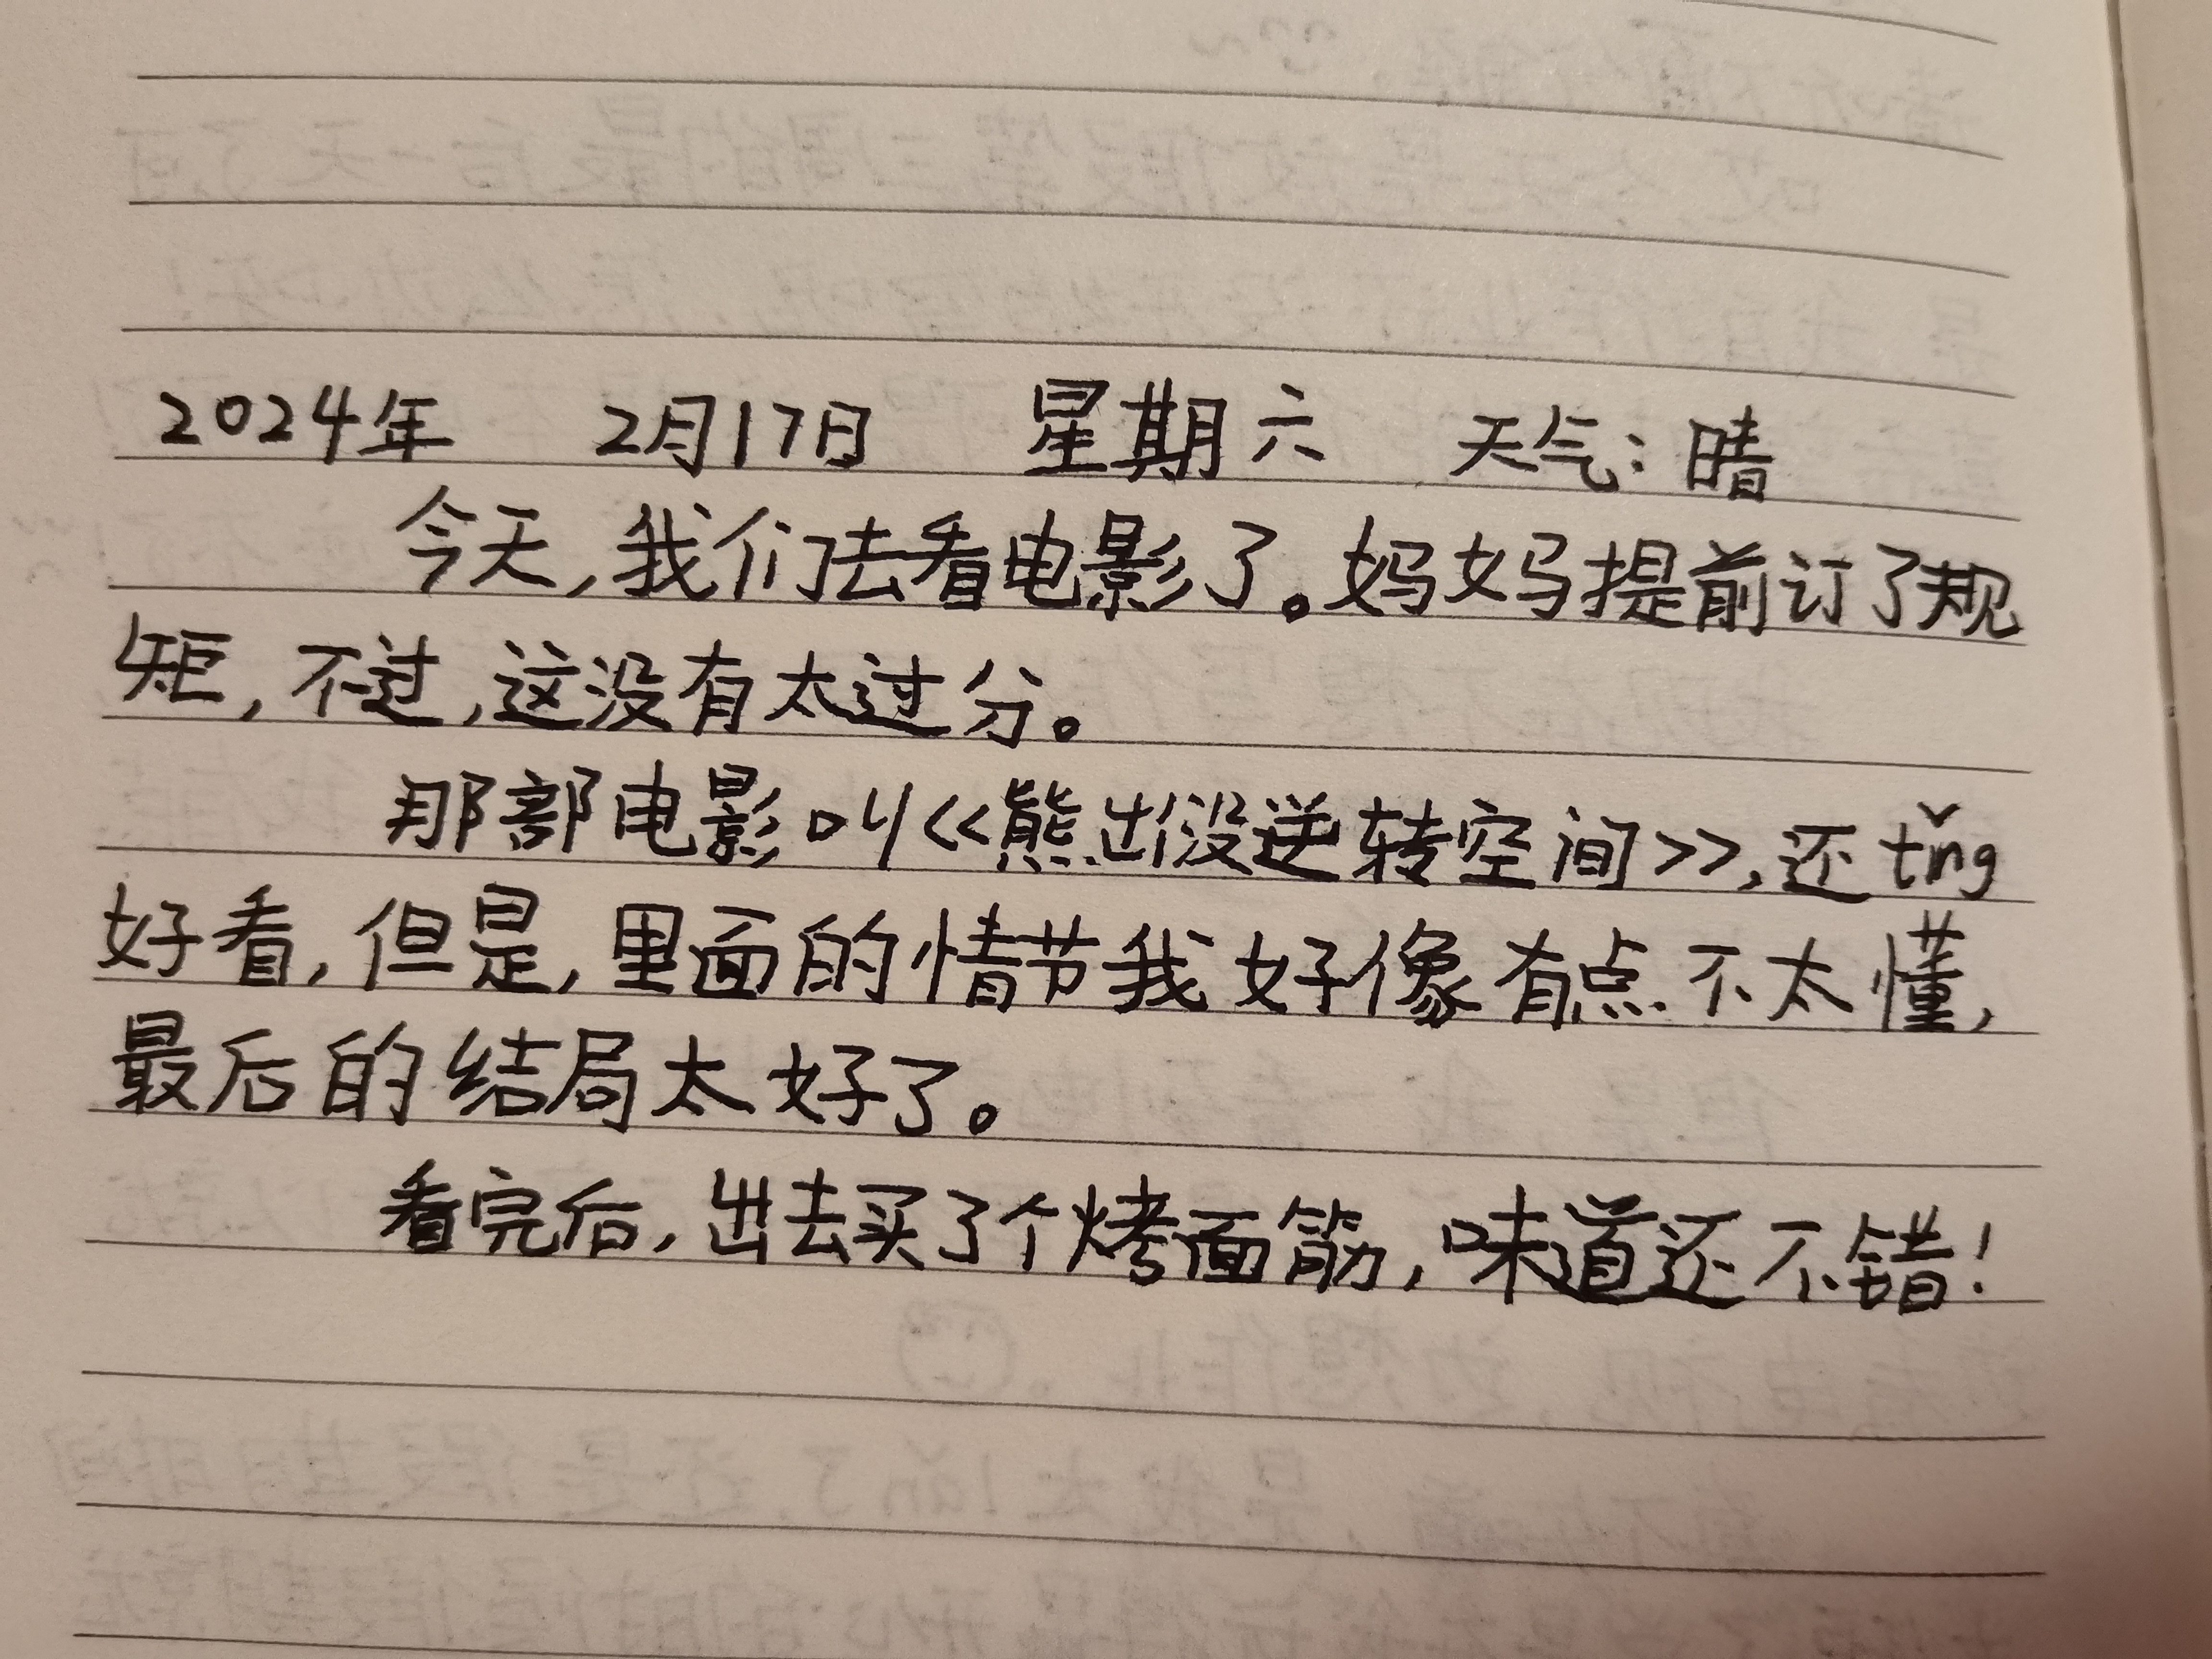 2024年 2月17日 星期六 天气：晴
今天，我们去看电影了。妈妈提前订了规
矩，不过，这没有太过分。
那部电影叫<<熊出没逆转空间>>，还tǐng
好看，但是，里面的情节我好像有点不太懂，
最后的结局太好了。
看完后，出去买了个烤面筋，味道还不错！